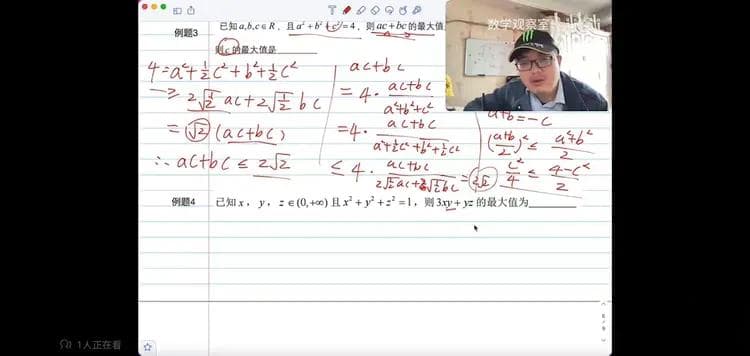 数学观察室
例题3 已知a,b,c∈R，且a²+b²+c²=4，则ac+bc的最大值
则c的最大值是
4=a²+½c²+b²+½c²
≥2√½ac+2√½bc
=√2(ac+bc)
∴ac+bc≤2√2
ac+bc
=4·(ac+bc)/(a²+b²+c²)
=4·(ac+bc)/(a²+½c²+b²+½c²)
≤4·(ac+bc)/(2√½ac+2√½bc)=2√2
a+b=-c
((a+b)/2)²≤(a²+b²)/2
c²/4≤(4-c²)/2
例题4 已知x，y，z∈(0,+∞)且x²+y²+z²=1，则3xy+yz的最大值为
6/9
1人正在看